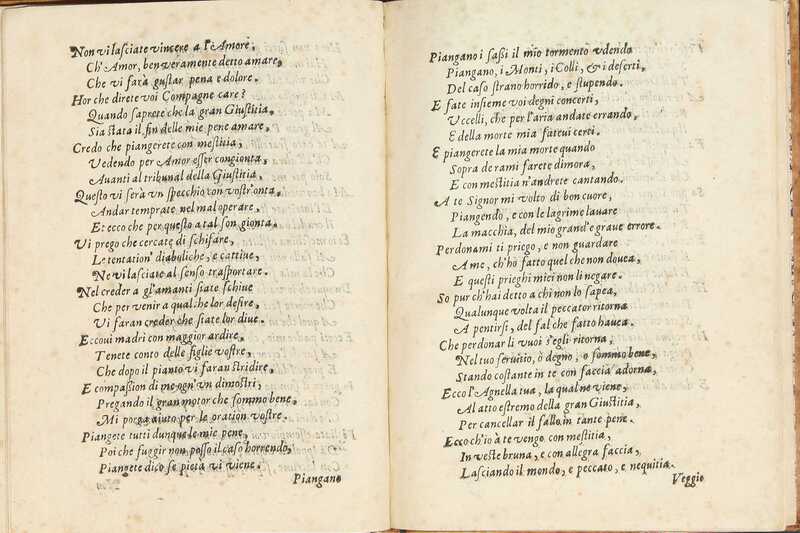 Non vi laſciate vincere a l'è Amore,
Ch'Amor, ben veramente detto amare,
Che vi farà guſtar pena e dolore.
Hor che direte voi Compagne care?
Quando ſaprete che la gran Giuſtitia,
Sia ſtata il fin delle mie pene amare,
Credo che piangerete con meſtitia,
Vedendo per Amor eſſer congionta,
Auanti al tribunal della Giuſtitia,
Queſto vi ſerà vn ſpecchio con voſtr'onta,
Andar temprate nel mal operare,
Et ecco che per queſto a tal ſon gionta,
Vi prego che cercate di ſchifare,
Le tentation' diaboliche, e cattiue,
Ne vi laſciate al ſenſo traſportare.
Nel creder a gl'amanti ſiate ſchiue
Che per venir a qualche lor deſire,
Vi faran creder che ſiate lor diue.
Eccoui madri con maggior ardire,
Tenete conto delle figlie voſtre,
Che dopo il pianto vi faran ſtridire,
E compaſſion di me ogn'vn dimoſtri,
Pregando il gran motor che ſommo bene,
Mi porga aiuto per le oration voſtre.
Piangete tutti dunque le mie pene,
Poi che fuggir non poſſo il caſo horrendo,
Piangete dico ſe pietà vi viene.
Piangano
Piangano i ſaſſi il mio tormento vdendo
Piangano, i Monti, i Colli, & i deſerti.
Del caſo ſtrano horrido, e ſtupendo.
E fate inſieme voi degni concerti,
Vccelli, che per l'aria andate errando,
E della morte mia fateui certi.
E piangerete la mia morte quando
Sopra de rami farete dimora,
E con meſtitia n'andrete cantando.
A te Signor mi volto di bon cuore,
Piangendo, e con le lagrime lauare
La macchia, del mio grand'e graue errore.
Perdonami ti priego, e non guardare
A me, ch'hò fatto quel che non douea,
E queſti prieghi miei non li negare.
So pur ch'hai detto a chi non lo ſapea,
Qualunque volta il peccator ritorna
A pentirſi, del fal che fatto hauea.
Che perdonar li vuoi s'egli ritorna,
Nel tuo ſeruitio, ò degno, o ſommo bene,
Stando coſtante in te con faccia adorna,
Ecco l'Agnella tua, la qual ne viene,
Al atto eſtremo della gran Giuſtitia,
Per cancellar il fallo in tante pene.
Ecco ch'io à te vengo con meſtitia,
In veſte bruna, e con allegra faccia,
Laſciando il mondo, e peccato, e nequitia.
Veggio